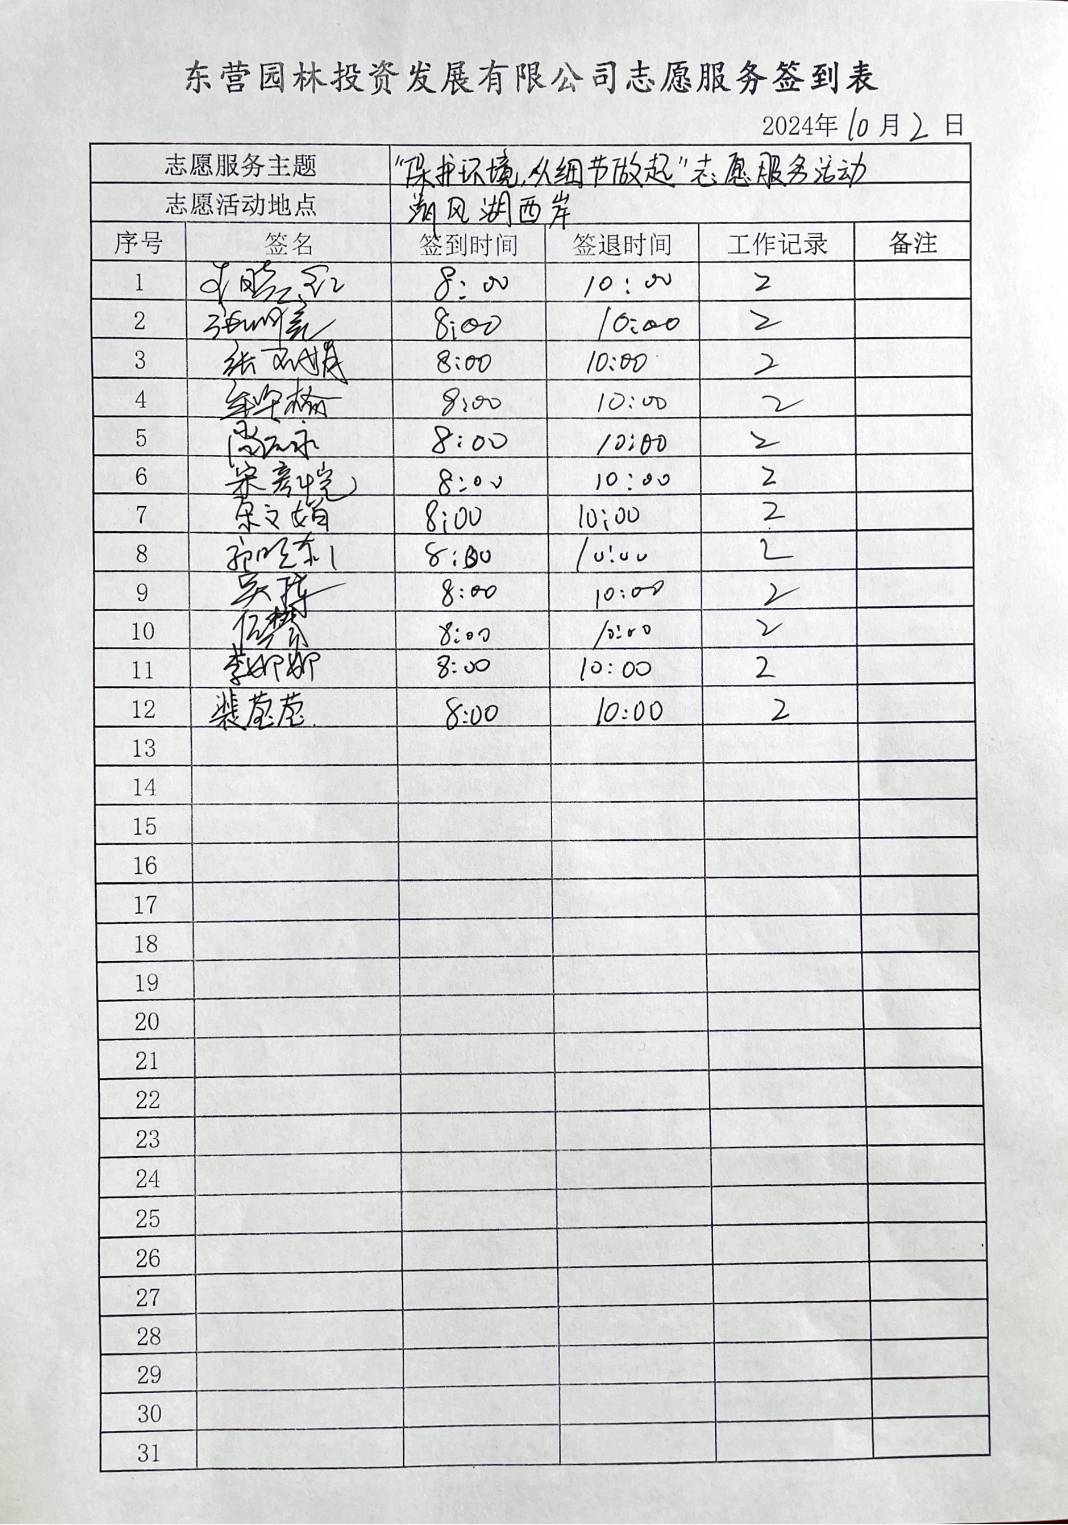 东营园林投资发展有限公司志愿服务签到表
2024年10月2日
志愿服务主题 “保护环境,从细节做起”志愿服务活动
志愿活动地点 湖西岸
序号 签名 签到时间 签退时间 工作记录 备注
1 8:00 10:00 2
2 8:00 10:00 2
3 张 8:00 10:00 2
4 8:00 10:00 2
5 8:00 10:00 2
6 宋 8:00 10:00 2
7 文娟 8:00 10:00 2
8 8:00 10:00 2
9 吴 8:00 10:00 2
10 伍 8:00 10:00 2
11 李娜娜 8:00 10:00 2
12 裴莹莹 8:00 10:00 2
13
14
15
16
17
18
19
20
21
22
23
24
25
26
27
28
29
30
31